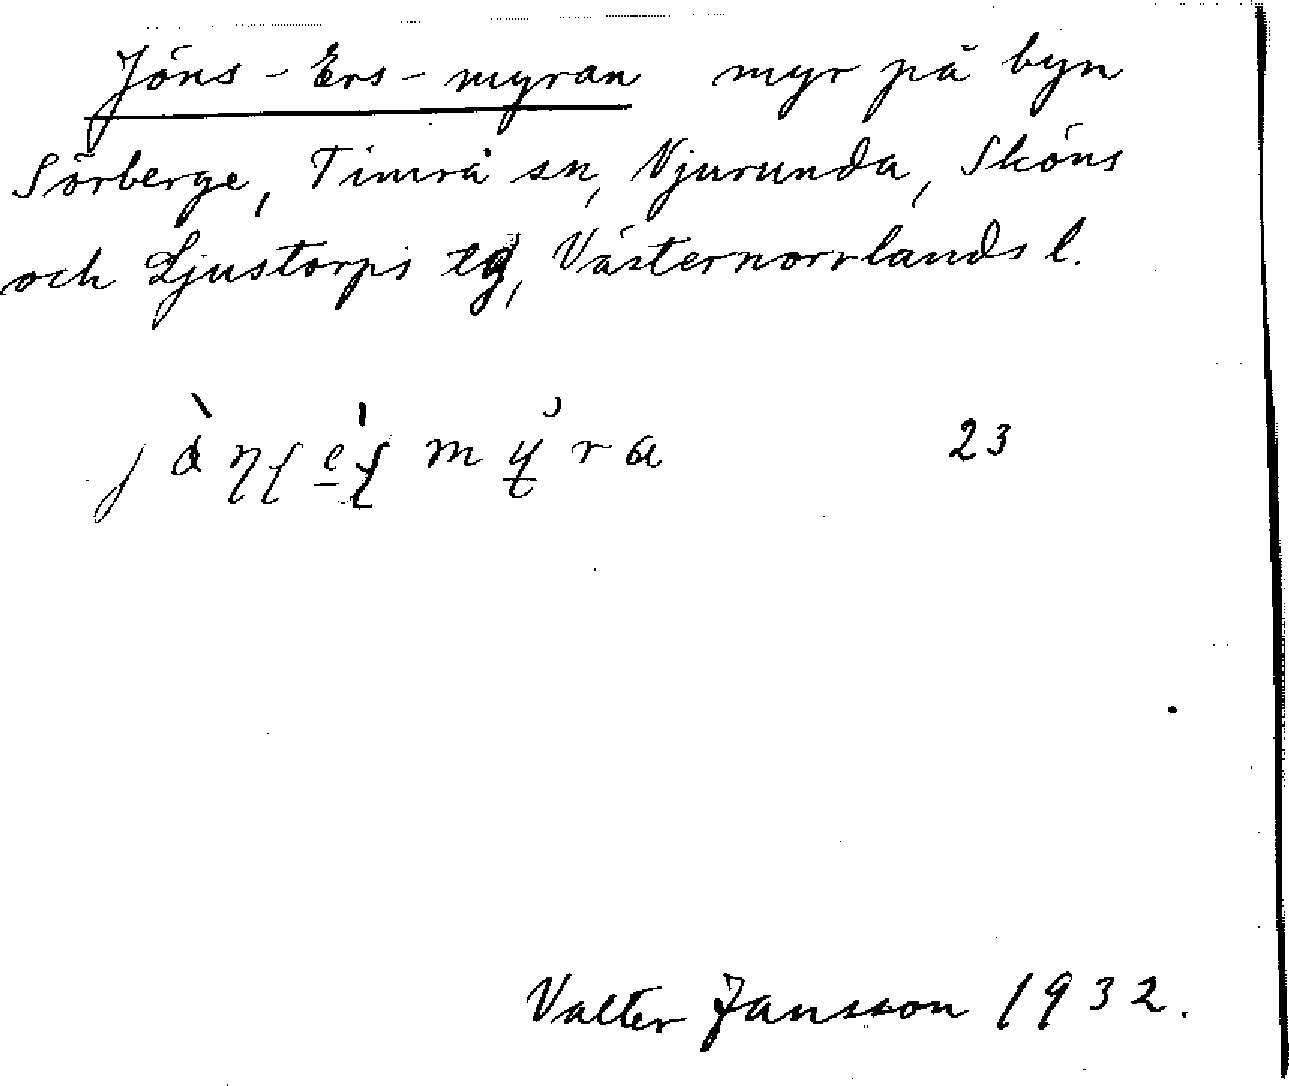 Jöns-Ers-myran myr på byn
Sörberge, Timrå sn, Njurunda, Sköns
och Ljustorps tg, Västernorrlands l.
23
Valter Jansson 1932.